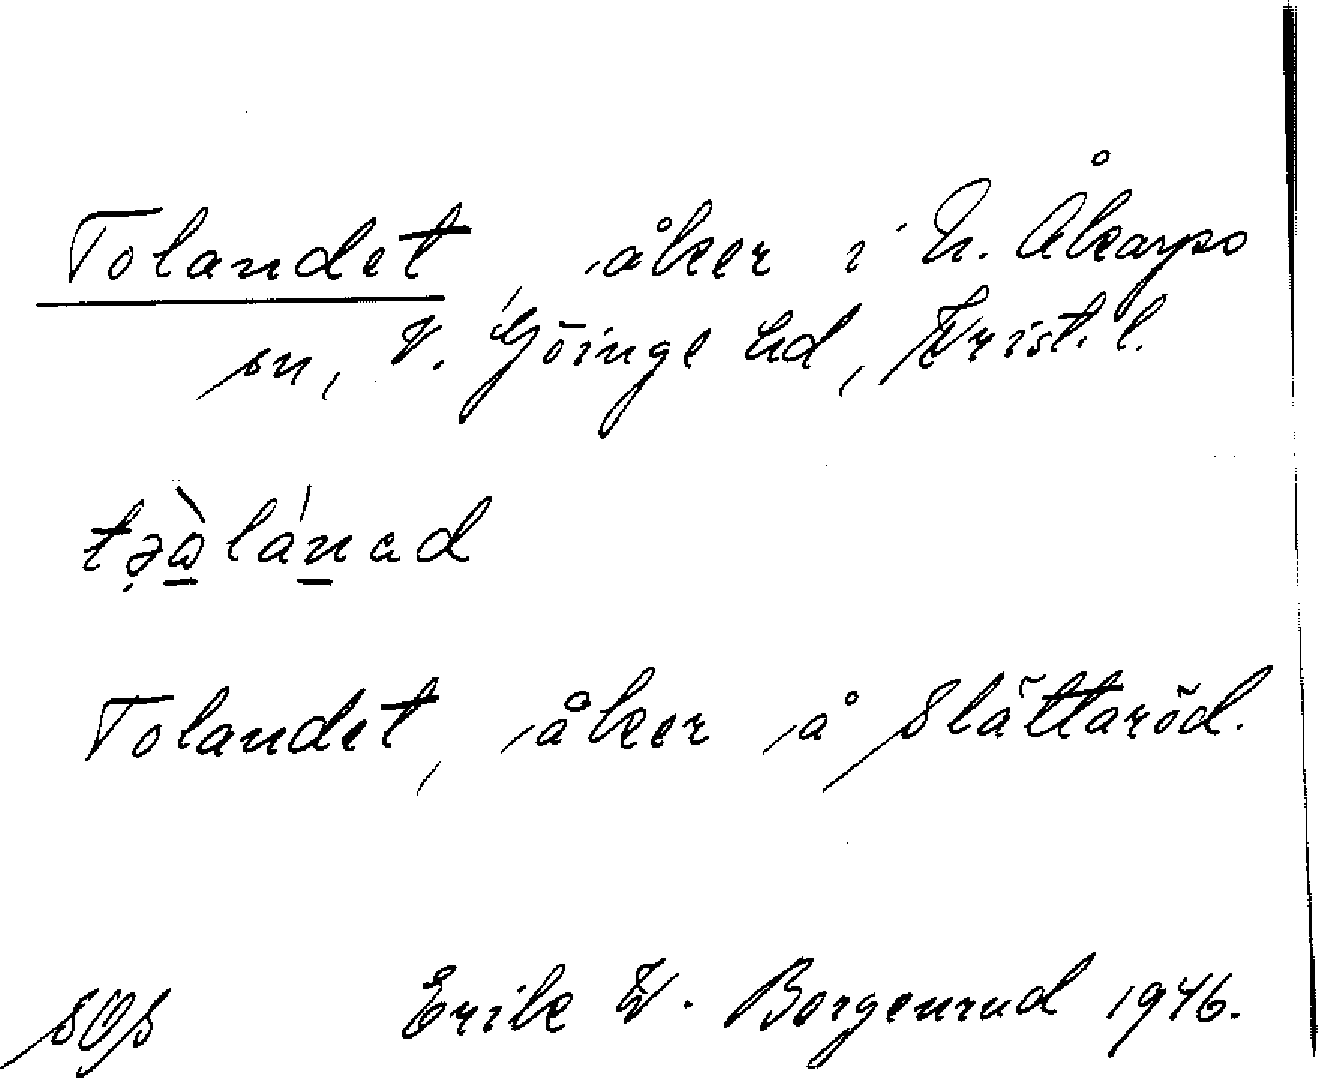 Tolandet åker i N. Åkarps
sn, V. Göinge hd, Krist. l.
Tolandet, åker å Slättaröd.
Erik W. Borgenrud 1946.